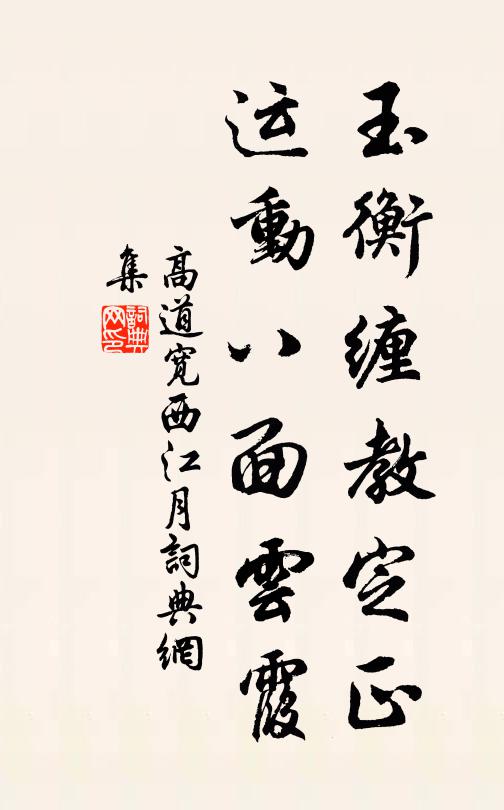 玉衡缠教定正
运動八面雲霞
高道寛西江月詞典網
集
詞典
网印